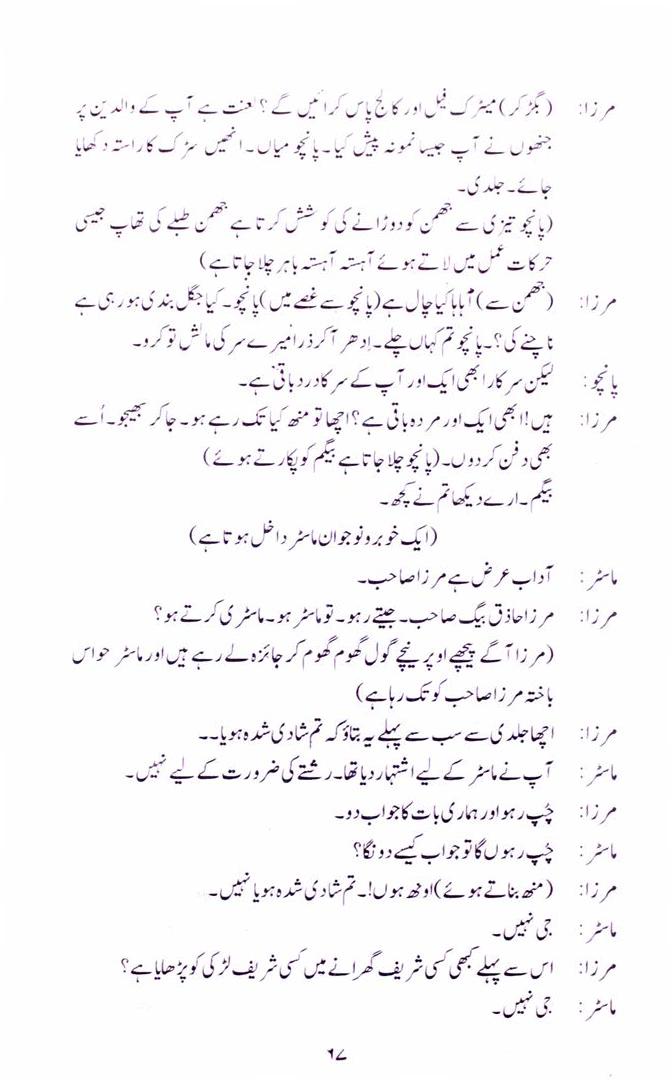 مرزا: (بگڑ کر) میٹرک فیل اور کالج پاس کرائیں گے؟ لعنت ہے آپ کے والدین پر
جنھوں نے آپ جیسا نمونہ پیش کیا۔ پانچو میاں۔ انھیں سڑک کا راستہ دکھایا
جائے۔ جلدی۔
(پانچو تیزی سے جھمن کو دوڑانے کی کوشش کرتا ہے جھمن طبلے کی تھاپ جیسی
حرکات عمل میں لاتے ہوئے آہستہ آہستہ باہر چلا جاتا ہے)
مرزا: (جھمن سے) آہاہا کیا چال ہے (پانچو سے غصے میں) پانچو۔ کیا جگل بندی ہو رہی ہے
ناچنے کی؟۔ پانچو تم کہاں چلے۔ اِدھر آ کر ذرا میرے سر کی مالش تو کرو۔
پانچو: لیکن سرکار ابھی ایک اور آپ کے سر کا درد باقی ہے۔
مرزا: ہیں! ابھی ایک اور مردہ باقی ہے؟ اچھا تو منھ کیا تک رہے ہو۔ جا کر بھیجو۔ اُسے
بھی دفن کر دوں۔ (پانچو چلا جاتا ہے بیگم کو پکارتے ہوئے)
بیگم۔ ارے دیکھا تم نے کچھ۔
(ایک خوبرو نوجوان ماسٹر داخل ہوتا ہے)
ماسٹر: آداب عرض ہے مرزا صاحب۔
مرزا: مرزا حاذق بیگ صاحب۔ جیتے رہو۔ تو ماسٹر ہو۔ ماسٹری کرتے ہو؟
(مرزا آگے پیچھے اوپر نیچے گول گھوم گھوم کر جائزہ لے رہے ہیں اور ماسٹر حواس
باختہ مرزا صاحب کو تک رہا ہے)
مرزا: اچھا جلدی سے سب سے پہلے یہ بتاؤ کہ تم شادی شدہ ہو یا۔۔
ماسٹر: آپ نے ماسٹر کے لیے اشتہار دیا تھا۔ رشتے کی ضرورت کے لیے نہیں۔
مرزا: چُپ رہو اور ہماری بات کا جواب دو۔
ماسٹر: چُپ رہوں گا تو جواب کیسے دونگا؟
مرزا: (منھ بناتے ہوئے) اونھ ہوں!۔ تم شادی شدہ ہو یا نہیں۔
ماسٹر: جی نہیں۔
مرزا: اس سے پہلے کبھی کسی شریف گھرانے میں کسی شریف لڑکی کو پڑھایا ہے؟
ماسٹر: جی نہیں۔
۶۷